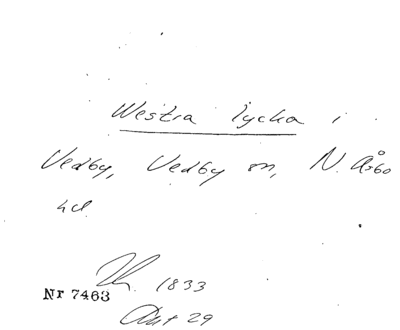 Westra lycka i
Vedby, Vedby sn, N. Åsbo
hd.
1833
Nr 7463
Akt 29